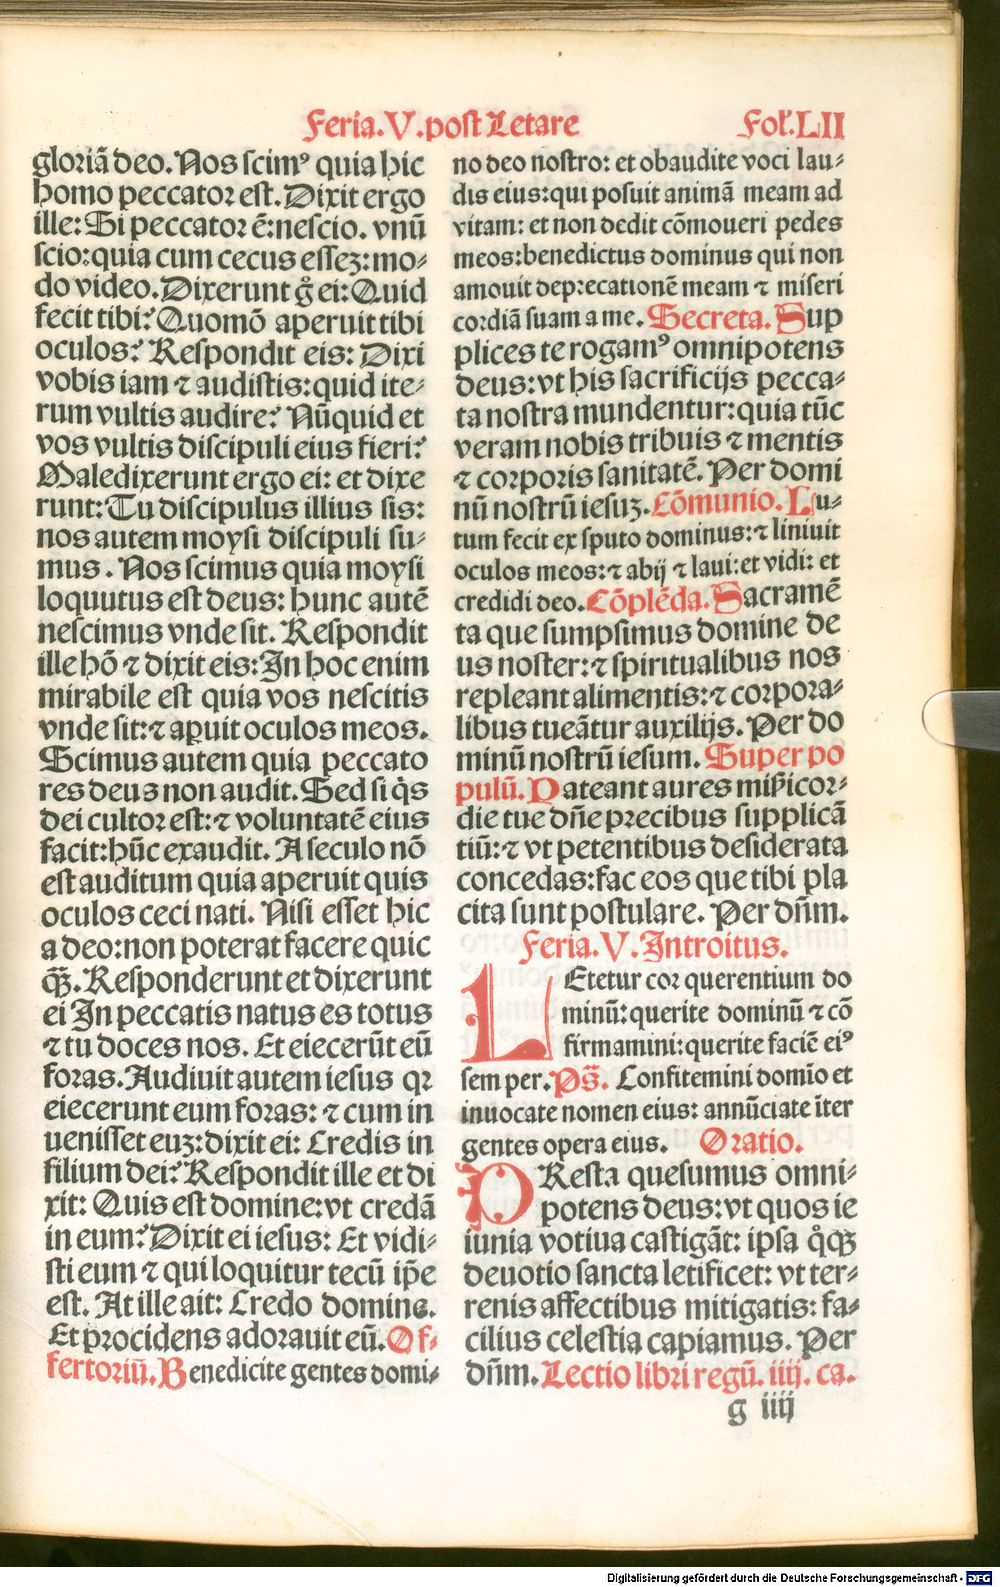 Feria.V.post Letare
Fol.LII
gloriā deo. Nos scimꝰ quia hic
homo peccator est. Dixit ergo
ille: Si peccator ē: nescio. vnū
scio: quia cum cecus essez: mo⸗
do video. Dixerunt gͦ ei: Quid
fecit tibi? Quomō aperuit tibi
oculos? Respondit eis: Dixi
vobis iam ⁊ audistis: quid ite⸗
rum vultis audire? Nūquid et
vos vultis discipuli eius fieri?
Maledixerunt ergo ei: et dixe
runt: Tu discipulus illius sis:
nos autem moysi discipuli su⸗
mus. Nos scimus quia moysi
loquutus est deus: hunc autē
nescimus vnde sit. Respondit
ille hō ⁊ dixit eis: In hoc enim
mirabile est quia vos nescitis
vnde sit: ⁊ aꝑuit oculos meos.
Scimus autem quia peccato
res deus non audit. Sed si q̇s
dei cultor est: ⁊ voluntatē eius
facit: hūc exaudit. A seculo nō
est auditum quia aperuit quis
oculos ceci nati. Nisi esset hic
a deo: non poterat facere quic
qꝫ. Responderunt et dixerunt
ei In peccatis natus es totus
⁊ tu doces nos. Et eiecerūt eū
foras. Audiuit autem iesus qꝛ
eiecerunt eum foras: ⁊ cum in
uenisset euꝫ: dixit ei: Credis in
filium dei? Respondit ille et di
xit: Quis est domine: vt credā
in eum? Dixit ei iesus: Et vidi⸗
sti eum ⁊ qui loquitur tecū ip̄e
est. At ille ait: Credo domine.
Et procidens adorauit eū. Of⸗
fertoriū. Benedicite gentes domi⸗
no deo nostro: et obaudite voci lau⸗
dis eius: qui posuit animā meam ad
vitam: et non dedit cōmoueri pedes
meos: benedictus dominus qui non
amouit deprecationē meam ⁊ miseri
cordiā suam a me. Secreta. Sup
plices te rogamꝰ omnipotens
deus: vt his sacrificijs pecca⸗
ta nostra mundentur: quia tūc
veram nobis tribuis ⁊ mentis
⁊ corporis sanitatē. Per domi
nū nostrū iesuꝫ. Cōmunio. Lu⸗
tum fecit ex sputo dominus: ⁊ liniuit
oculos meos: ⁊ abij ⁊ laui: et vidi: et
credidi deo. Cōplēda. Sacramē
ta que sumpsimus domine de
us noster: ⁊ spiritualibus nos
repleant alimentis: ⁊ corpora⸗
libus tueātur auxilijs. Per do
minū nostrū iesum. Super po
pulū. Pateant aures mīẜicor⸗
die tue dn̄e precibus supplicā
tiū: ⁊ vt petentibus desiderata
concedas: fac eos que tibi pla
cita sunt postulare. Per dn̄m.
Feria. V. Introitus.
LEtetur cor querentium do
minū: querite dominū ⁊ cō
firmamini: querite faciē eiꝰ
semper. Ps̄. Confitemini domīo et
inuocate nomen eius: annūciate īter
gentes opera eius. Oratio.
PResta quesumus omni⸗
potens deus: vt quos ie
iunia votiua castigāt: ipsa q̊qꝫ
deuotio sancta letificet: vt ter⸗
renis affectibus mitigatis: fa⸗
cilius celestia capiamus. Per
dn̄m. Lectio libri regū. iiij. ca.
g iiij
Digitalisierung gefördert durch die Deutsche Forschungsgemeinschaft - DFG